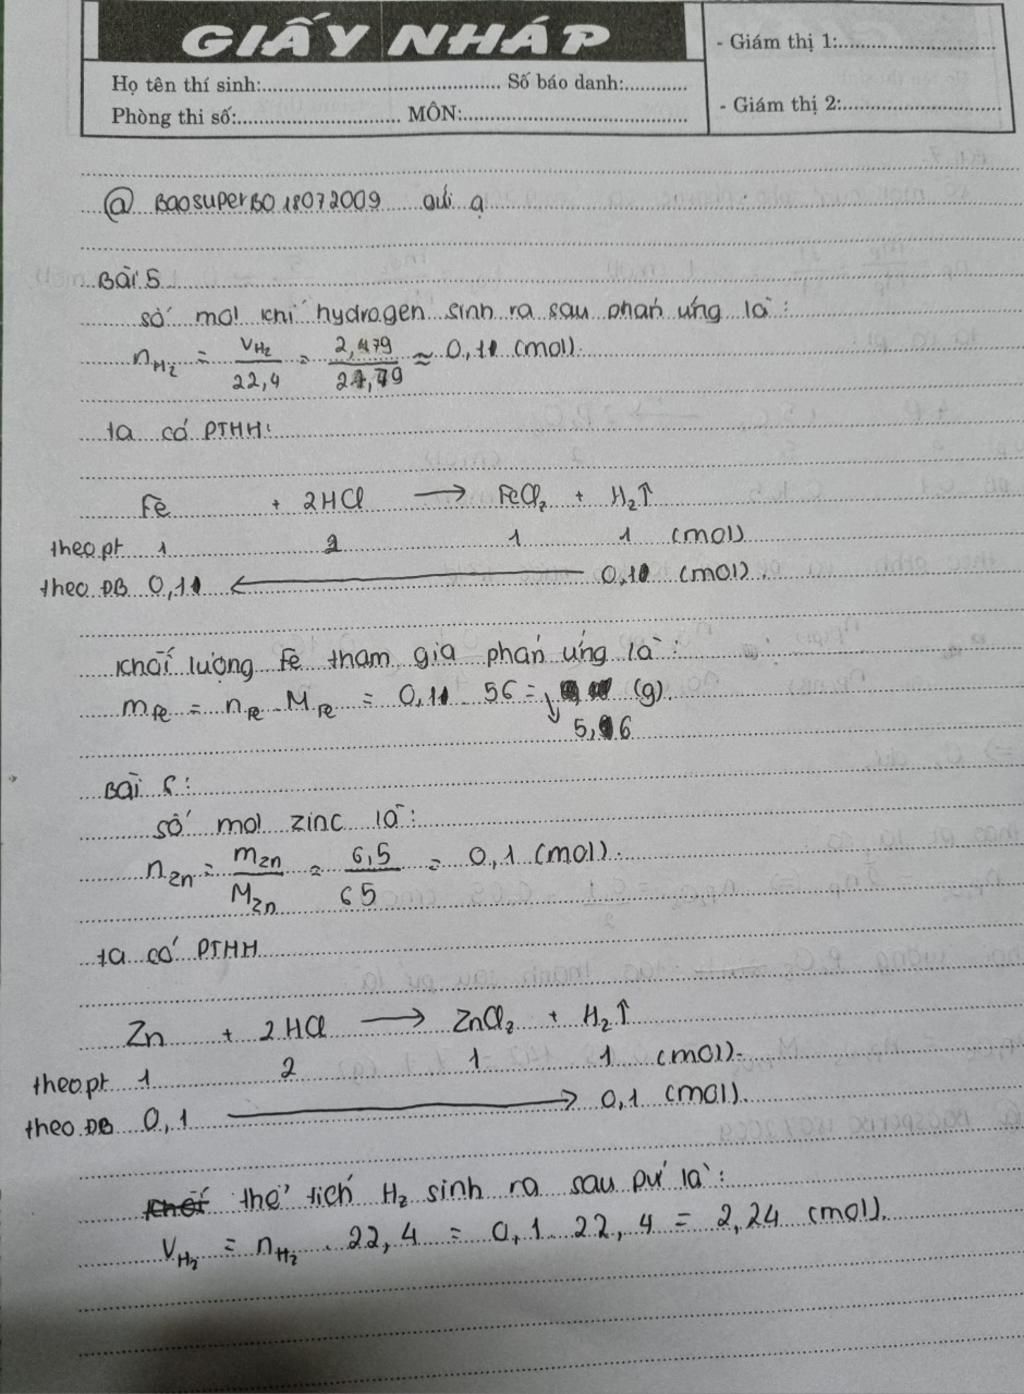 GIẤY NHÁP
Họ tên thí sinh:................ Số báo danh:............
Phòng thi số:................ MÔN:................
- Giám thị 1:................
- Giám thị 2:................
@ BaosuperBO 18072009 gửi ạ
Bài 5
số mol khí hydrogen sinh ra sau phản ứng là:
nH2 = VH2/22,4 = 2,479/24,79 ≈ 0,1 (mol).
ta có PTHH:
Fe + 2HCl → FeCl2 + H2↑
theo pt 1 2 1 1 (mol)
theo ĐB 0,1 ← 0,1 (mol).
khối lượng Fe tham gia phản ứng là:
mFe = nFe . MFe = 0,1 . 56 = (g).
5,6
Bài 6:
số mol zinc là:
nZn = mZn/MZn = 6,5/65 = 0,1 (mol).
ta có PTHH
Zn + 2HCl → ZnCl2 + H2↑
theo pt 1 2 1 1 (mol).
theo ĐB 0,1 → 0,1 (mol).
thể tích H2 sinh ra sau pứ là:
VH2 = nH2 . 22,4 = 0,1 . 22,4 = 2,24 (mol).